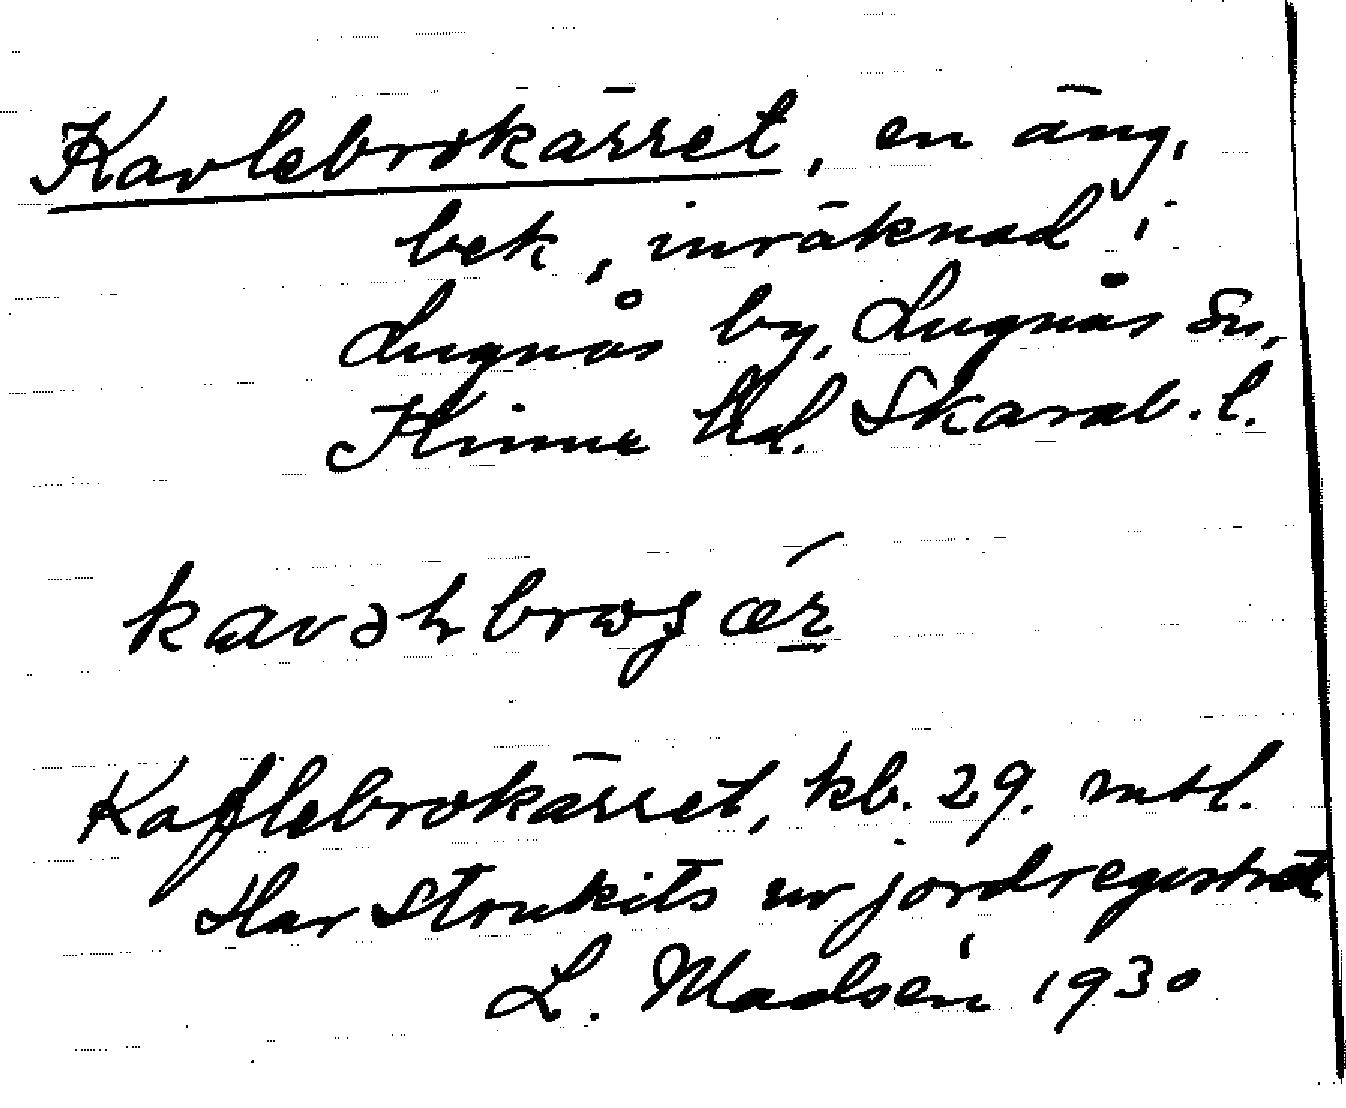 Kavlebrokärret, en äng,
bek, inräknad i
Lugnås by, Lugnås sn,
Kinne hd. Skarab. l.
Kaflebrokärret, kb. 29. mtl.
Har strukits ur jordregistret
L. Madsén 1930